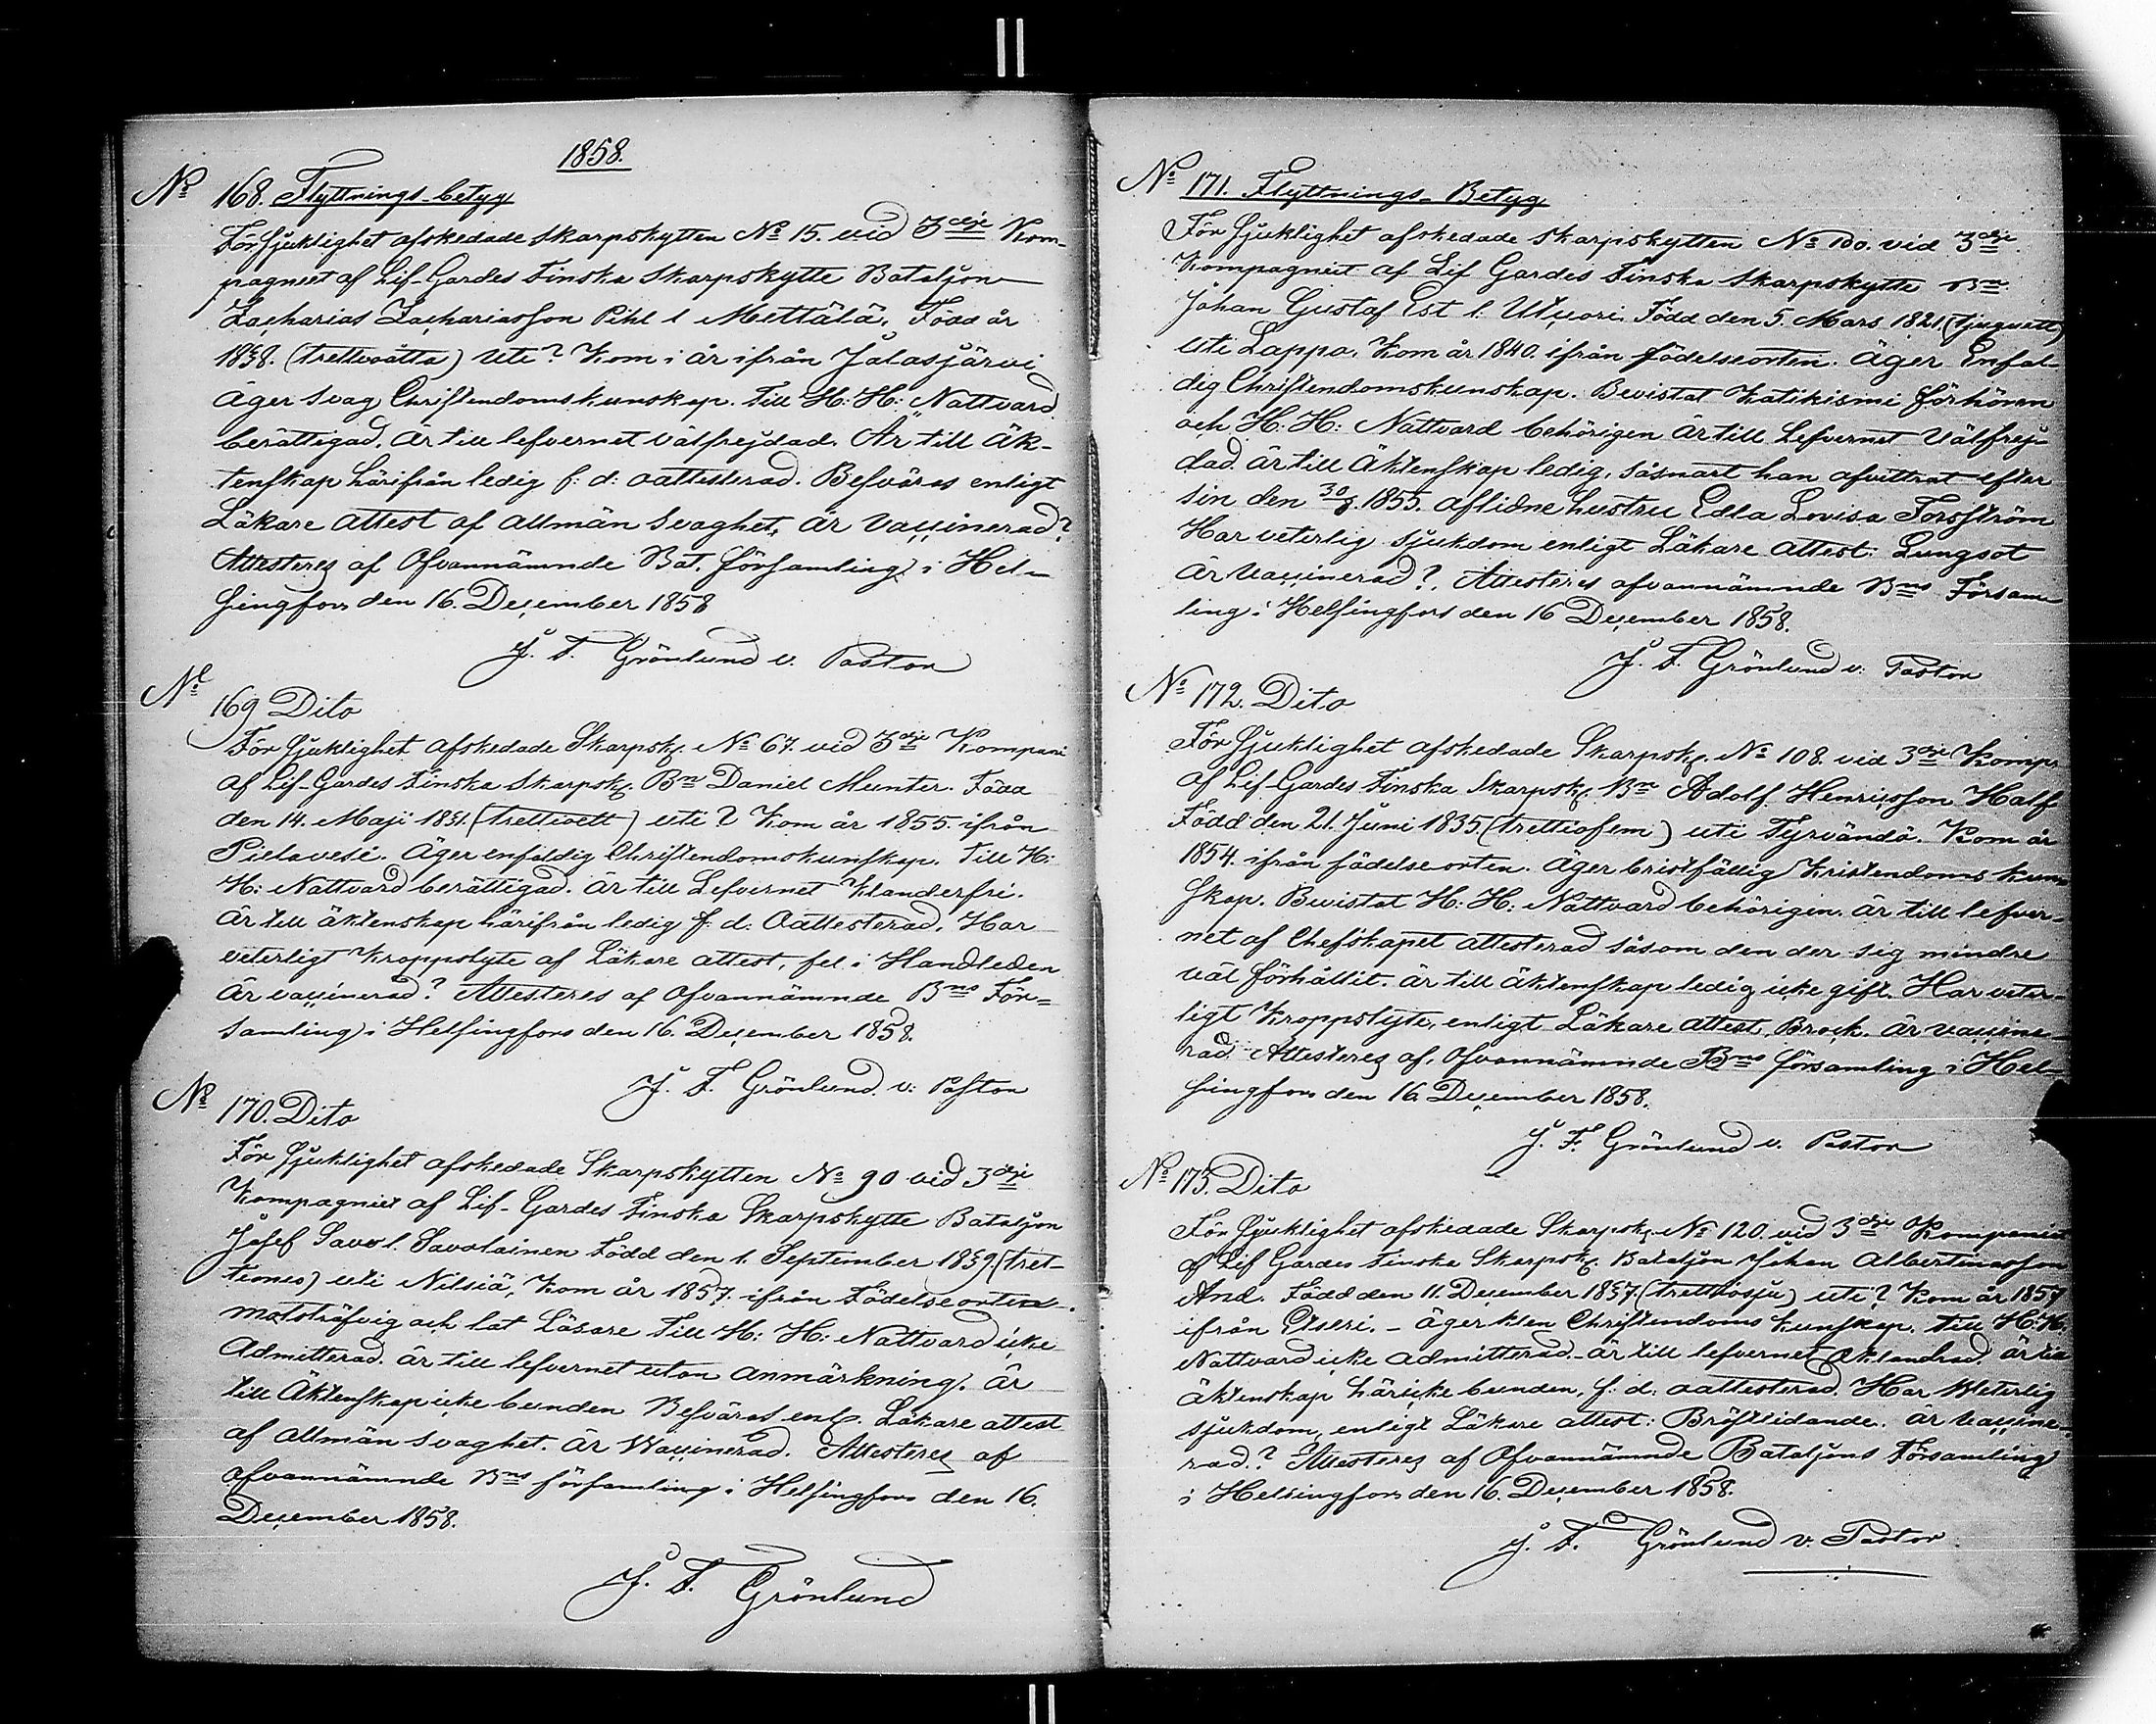 1858.
No 168. Flyttnings-betyg
För Sjuklighet afskedade Skarpskytten No 15. vid 3dje Kom-
pagniet af Lif-Gardes Finska Skarpskytte Bataljon
Zacharias Zachariasson Pihl l. Mettälä. Född år
1838. (trettioåtta) uti? Kom i år ifrån Jalasjärvi
Äger svag Christendomskunskap. Till H: H: Nattvard
berättigad. Är till lefvernet välfrejdad. Är till äk-
tenskap härifrån ledig f: d: oattesterad. Besväras enligt
Läkare attest af allmän svaghet, är vaccinerad?
Attesteras af Ofvannämnde Bat. församling i Hel-
singfors den 16. December 1858
J. F. Grönlund v. Pastor
No 169 Dito
För Sjuklighet afskedade Skarpsk. No 67 vid 3dje Kompani
af Lif-Gardes Finska Skarpsk. Bn Daniel Munter. Född
den 14. Maji 1831. (trettioett) uti? Kom år 1855. ifrån
Pielavesi. Äger enfaldig Christendomskunskap. Till H:
H: Nattvard berättigad. Är till Lefvernet klanderfri.
Är till äktenskap härifrån ledig f: d: Oattesterad. Har
veterligt Kroppslyte af Läkare attest, fel i Handleden
Är vaccinerad? Attesteres af Ofvannämnde Bns För-
samling i Helsingfors den 16. December 1858.
J. F. Grönlund. v: Pastor
No 170. Dito
För Sjuklighet afskedade Skarpskytten No 90 vid 3dje
Kompagniet af Lif-Gardes Finska Skarpskytte Bataljon
Josef Savo l. Savolainen Född den 1. September 1839 (tret-
tionio) uti Nilsiä, Kom år 1857. ifrån Födelseorten.
motsträfvig och lat Läsare Till H: H: Nattvard icke
Admitterad. är till lefvernet utan anmärkning. Är
till Äktenskap icke bunden Besväras enl. Läkare attest
af allmän svaghet. Är Waccinerad. Attesteres af
ofvannämnde Bns församling i Helsingfors den 16.
December 1858.
J. F. Grönlund
No 171. Flyttnings-Betyg
För Sjuklighet afskedade Skarpskytten No 100. vid 3dje
Kompagniet af Lif Gardes Finska Skarpskytte Bn
Johan Gustaf Est l. Utuori. Född den 5. Mars 1821. (tjuguett)
uti Lappo. Kom år 1840. ifrån födelseorten. Äger Enfal-
dig Christendomskunskap. Bevistat Katikismi förhören
och H. H: Nattvard behörigen Är till Lefvernet Välfrej-
dad. är till Äktenskap ledig, såsnart han afvittrat efter
sin den 30/8. 1855. aflidne hustru Edla Lovisa Forsström
Har veterlig sjukdom enligt Läkare attest: Lungsot
är Vaccinerad? Attesteres ofvannämnde Bns Försam-
ling i Helsingfors den 16 December 1858.
J. F. Grönlund v: Pastor
No 172. Dito
För Sjuklighet afskedade Skarpsk. No 108. vid 3dje Komp.
af Lif Gardes Finska Skarpsk. Bn Adolf Henricsson Half
Född den 21. Juni 1835. (trettiofem) uti Tyrvändö. Kom år
1854. ifrån födelseorten. Äger bristfällig Kristendoms kun-
skap. Bevistat H: H: Nattvard behörigen. är till lefver-
net af Chefskapet attesterad såsom den der sig mindre
väl förhållit. är till äktenskap ledig icke gift. Har veter-
ligt Kroppslyte, enligt Läkare attest, Brock. är vaccine-
rad. Attesteres af Ofvannämnde Bns församling i Hel-
singfors den 16 December 1858.
J. F. Grönlund v. Pastor
No 173. Dito
För Sjuklighet afskedade Skarpsk. No 120. vid 3dje Kompaniet
af Lif Gardes Finska Skarpsk. Bataljon Johan Albertinasson
And. Född den 11. December 1837. (trettiosju) uti? Kom år 1857
ifrån Etseri. - äger klen Christendoms kunskap. till H: H:
Nattvard icke admitterad. - är till lefvernet oklandrad. är till
äktenskap här icke bunden, f: d: oattesterad. Har Veterlig
sjukdom, enligt Läkare attest: Bröstlidande. är vaccine-
rad.? Attesteres af Ofvannämnde Bataljons Församling
i Helsingfors den 16. December 1858.
J. F. Grönlund v. Pastor